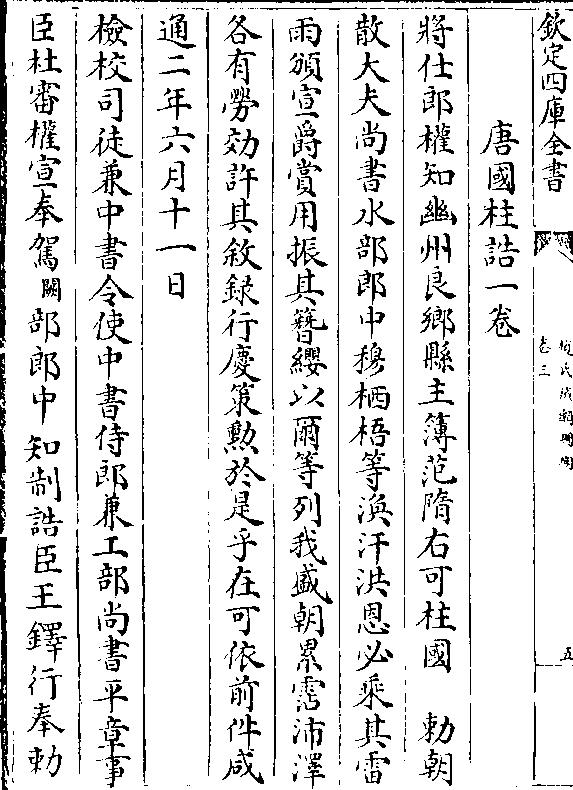 欽定四庫全書
卷三
五
唐國柱誥一卷
將仕郎權知幽州良鄉縣主簿范隋右可柱國　勅朝
散大夫尚書水部郎中穆栖梧等渙汗洪恩必乘其雷
雨頒宣爵賞用振其簪纓以爾等列我盛朝累霑沛澤
各有勞効許其敘録行慶策勲於是乎在可依前件咸
通二年六月十一日
檢校司徒兼中書令使中書侍郎兼工部尚書平章事
臣杜審權宣奉駕闕部郎中知制誥臣王鐸行奉勅